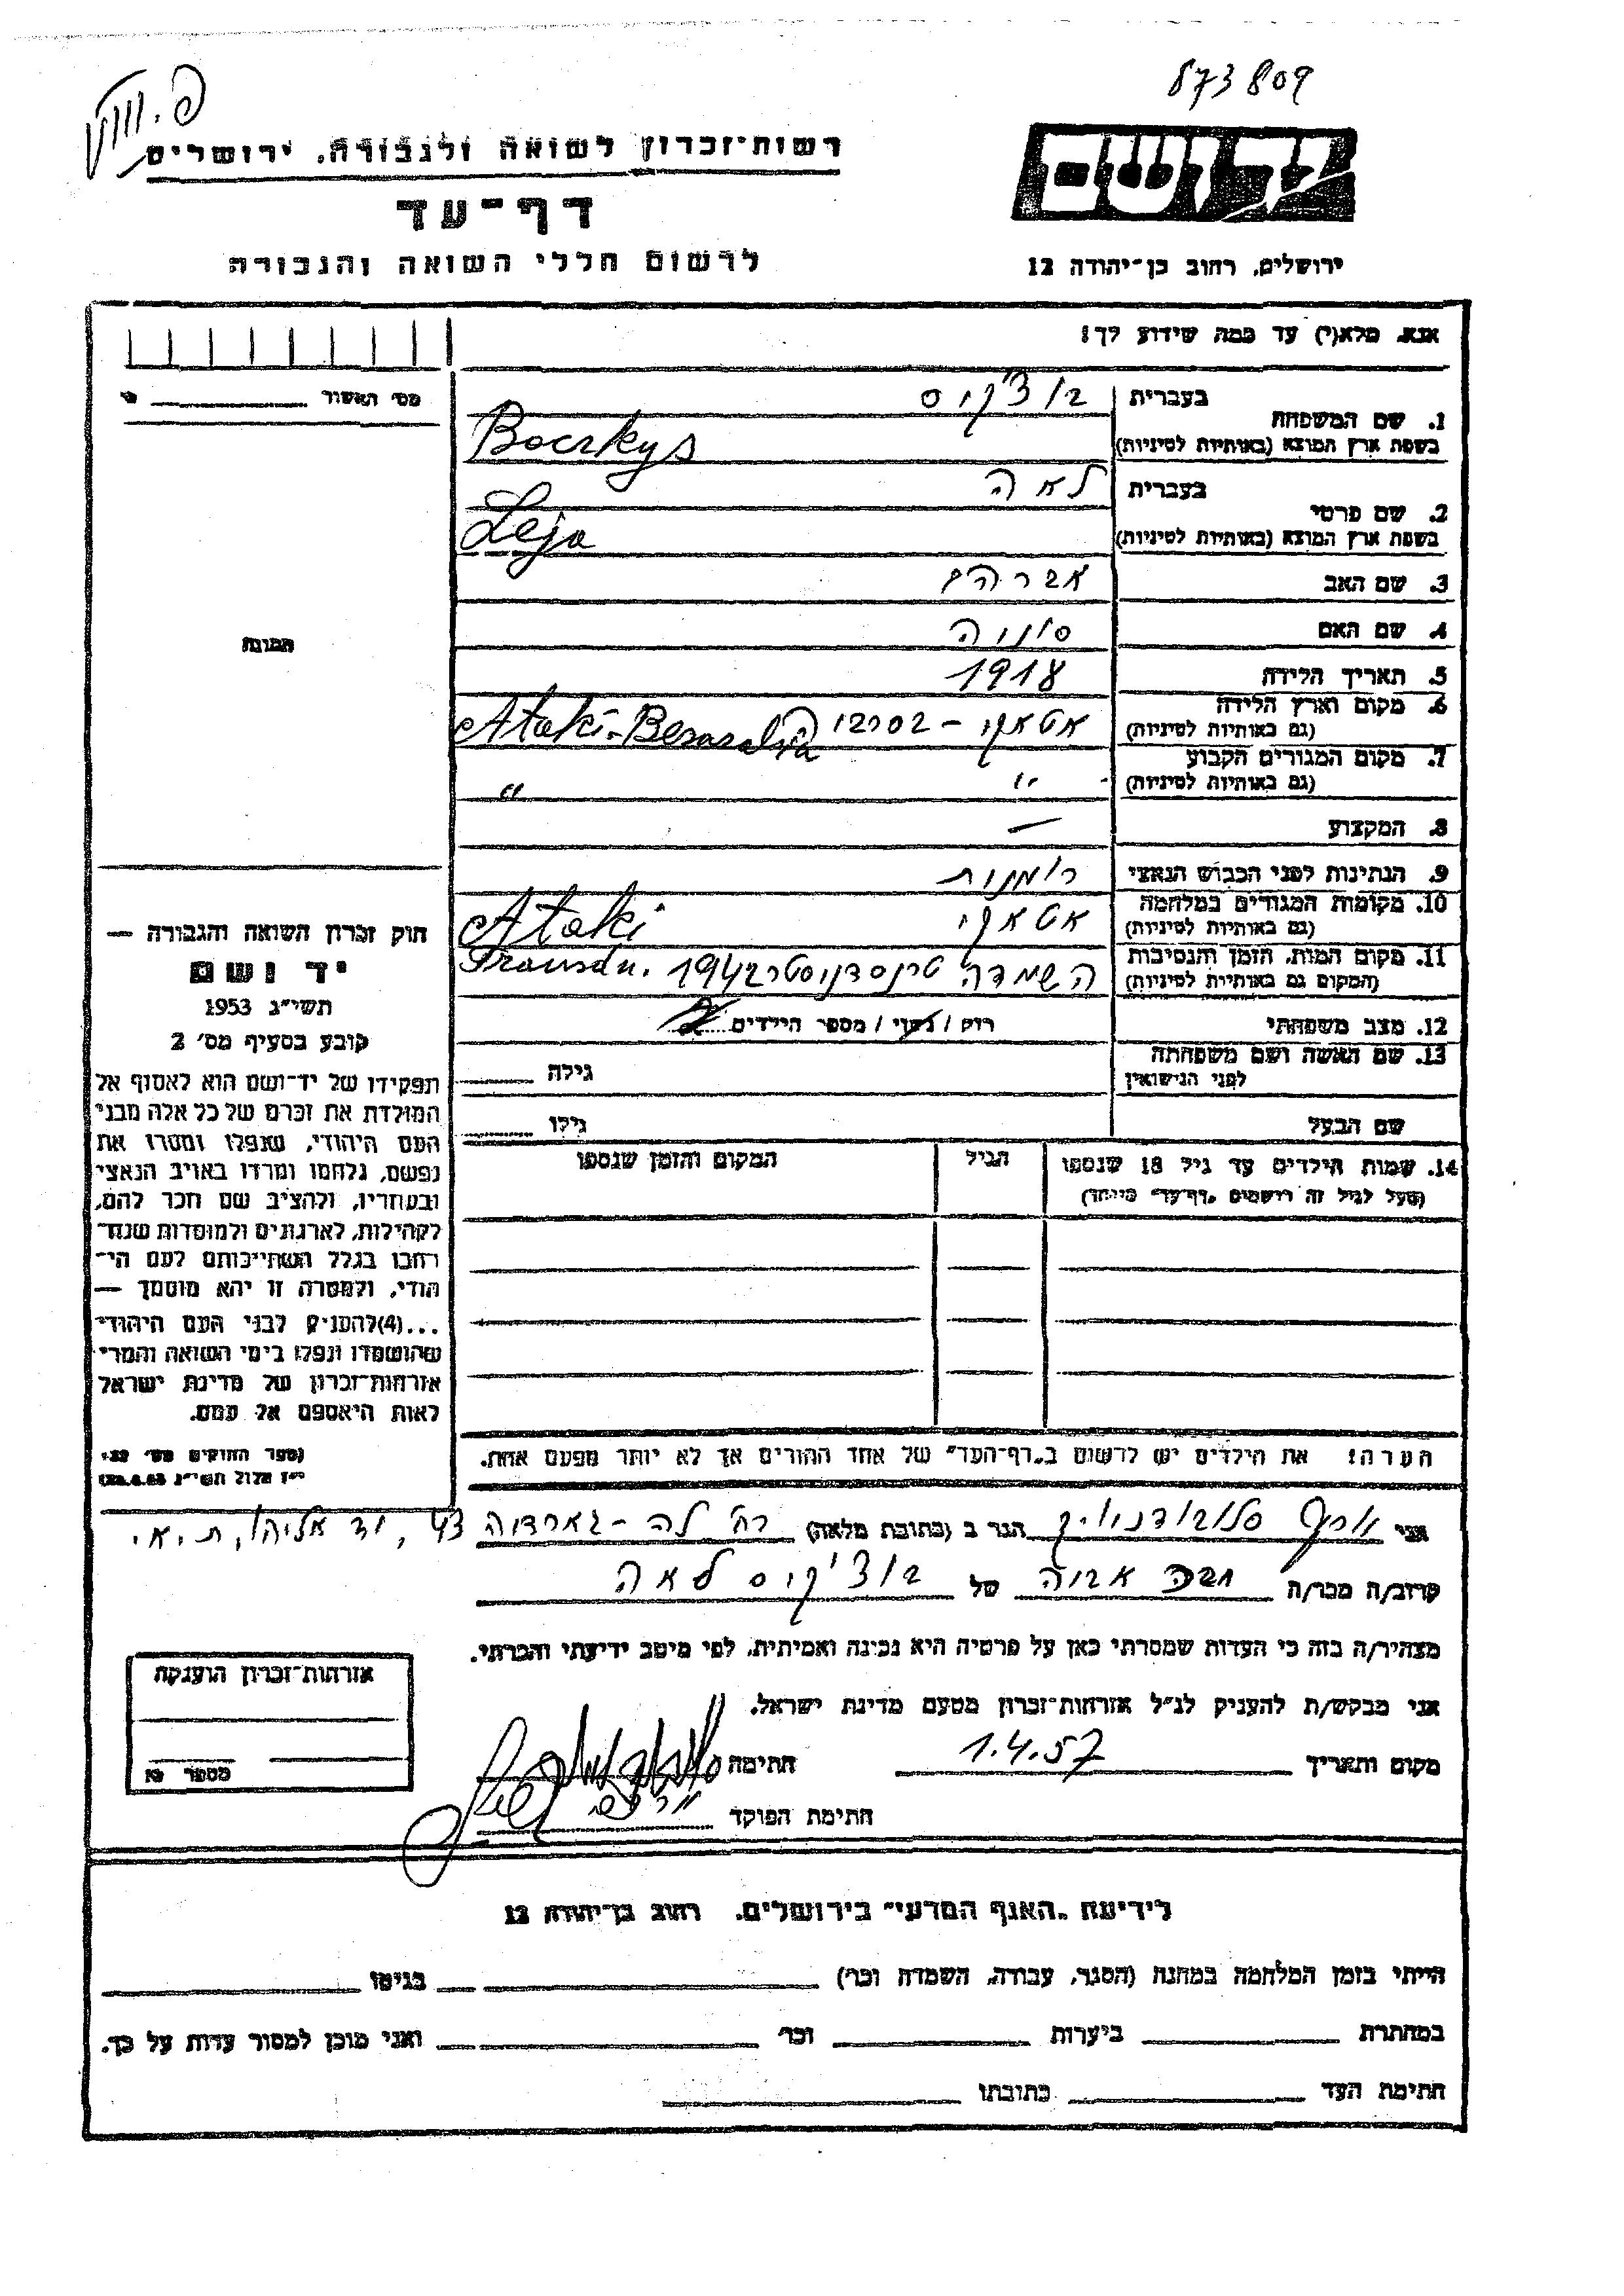 873809
רשות-זכרון לשואה ולגבורה, ירושלים
דף-עד
לרשום חללי השואה והגבורה
ירושלים, רחוב בן-יהודה 12
אנא, מלא(י) עד כמה שידוע לך!
מס׳ האשור
1. שם המשפחה בעברית בוצ'קיס
בשפת ארץ המוצא (באותיות לטיניות) Boczkys
2. שם פרטי בעברית לאה
בשפת ארץ המוצא (באותיות לטיניות) Leja
3. שם האב אברהם
4. שם האם
5. תאריך הלידה 1918
6. מקום וארץ הלידה (גם באותיות לטיניות) אטאקי - בסרביה Ataki-
7. מקום המגורים הקבוע (גם באותיות לטיניות) " "
8. המקצוע —
9. הנתינות לפני הכבוש הנאצי רומנית
10. מקומות המגורים במלחמה (גם באותיות לטיניות) אטאקי Ataki
11. מקום המות, הזמן והנסיבות (המקום גם באותיות לטיניות) השמדה טרנסדניסטר 1942 Transdn.
12. מצב משפחתי רוק / נשוי / מספר הילדים
13. שם האשה ושם משפחתה לפני הנישואין גילה
שם הבעל גילו
14. שמות הילדים עד גיל 18 שנספו הגיל המקום והזמן שנספו
(מעל לגיל זה רושמים "דף-עד" מיוחד)
הערה: את הילדים יש לרשום ב"דף-העד" של אחד ההורים אך לא יותר מפעם אחת.
התמונה
חוק זכרון השואה והגבורה —
יד ושם
תשי"ג 1953
קובע בסעיף מס׳ 2
תפקידו של יד-ושם הוא לאסוף אל
המולדת את זכרם של כל אלה מבני
העם היהודי, שנפלו ומסרו את
נפשם, נלחמו ומרדו באויב הנאצי
ובעוזריו, ולהציב שם וזכר להם,
לקהילות, לארגונים ולמוסדות שנח-
רבו בגלל השתייכותם לעם הי-
הודי, ולמטרה זו יהא מוסמך —
...(4)להעניק לבני העם היהודי
שהושמדו ונפלו בימי השואה והמרי
אזרחות-זכרון של מדינת ישראל
לאות היאספם אל עמם.
(ספר החוקים מס׳ 132,
י"ז אלול תשי"ג 28.8.53)
אני סלובודניק הגר ב (כתובת מלאה) רח' לה-גארדיה 43, יד אליהו, ת.א.
קרוב/ה מכר/ה של בוצ'קיס לאה
מצהיר/ה בזה כי העדות שמסרתי כאן על פרטיה היא נכונה ואמיתית, לפי מיטב ידיעתי והכרתי.
אני מבקש/ת להעניק לנ"ל אזרחות-זכרון מטעם מדינת ישראל.
מקום ותאריך 1.4.57 חתימה
חתימת הפוקד
אזרחות-זכרון הוענקה
מספר
לידיעת "האגף המדעי" בירושלים, רחוב בן-יהודה 12
הייתי בזמן המלחמה במחנה (הסגר, עבודה, השמדה וכו') בגיטו
במחתרת ביערות וכו' ואני מוכן למסור עדות על כך.
חתימת העד כתובתו